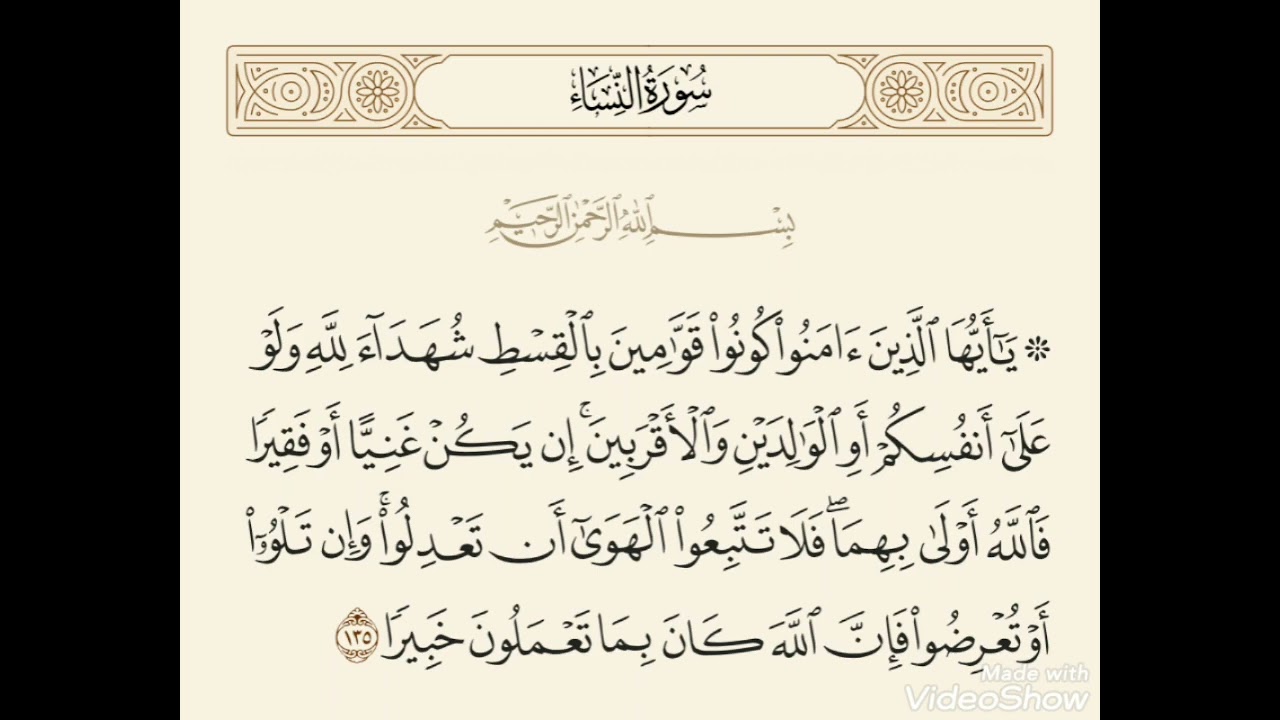 سُورَةُ النِّسَاءِ
بِسْمِ ٱللَّهِ ٱلرَّحْمَٰنِ ٱلرَّحِيمِ
۞ يَٰٓأَيُّهَا ٱلَّذِينَ ءَامَنُوا۟ كُونُوا۟ قَوَّٰمِينَ بِٱلْقِسْطِ شُهَدَآءَ لِلَّهِ وَلَوْ
عَلَىٰٓ أَنفُسِكُمْ أَوِ ٱلْوَٰلِدَيْنِ وَٱلْأَقْرَبِينَ ۚ إِن يَكُنْ غَنِيًّا أَوْ فَقِيرًا
فَٱللَّهُ أَوْلَىٰ بِهِمَا ۖ فَلَا تَتَّبِعُوا۟ ٱلْهَوَىٰٓ أَن تَعْدِلُوا۟ ۚ وَإِن تَلْوُۥٓا۟
أَوْ تُعْرِضُوا۟ فَإِنَّ ٱللَّهَ كَانَ بِمَا تَعْمَلُونَ خَبِيرًا ١٣٥
Made with
VideoShow